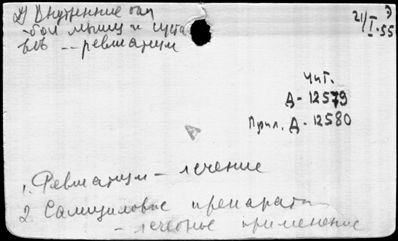 21/I.55 Э
2) Внутренние
бол мышц и суста
вов -- ревматизм
Чит.
Д-12579
Прил. Д-12580
1. Ревматизм - лечение
2 Салициловые препараты
- лечебное применение